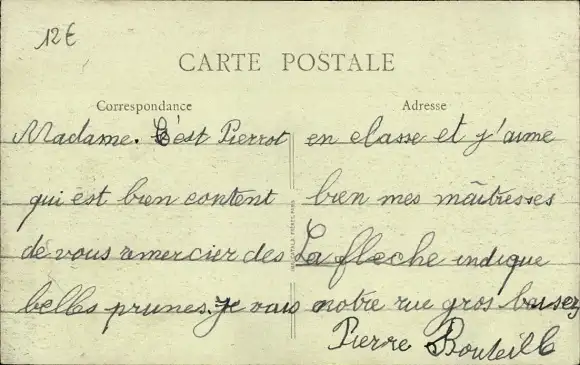 12€
CARTE POSTALE
Correspondance Adresse
Madame. C'est Pierrot en classe et j'aime
qui est bien content bien mes maîtresses
de vous remercier des La flèche indique
belles prunes. je vais notre rue gros baisez
Pierre Bouteille